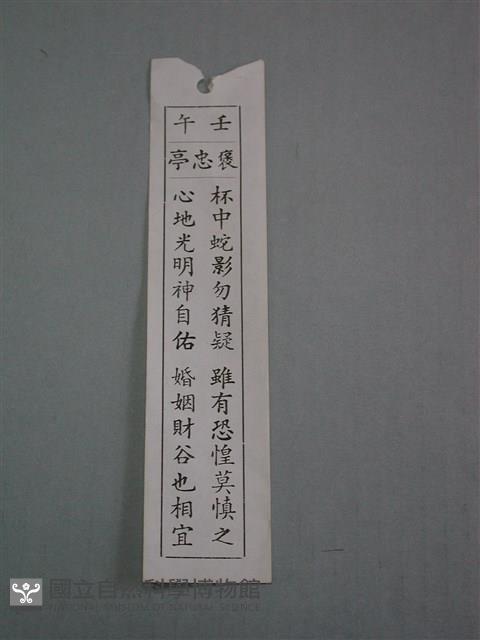 壬午
褒忠亭
杯中蛇影勿猜疑 雖有恐惶莫慎之
心地光明神自佑 婚姻財谷也相宜
國立自然科學博物館
NATIONAL MUSEUM OF NATURAL SCIENCE